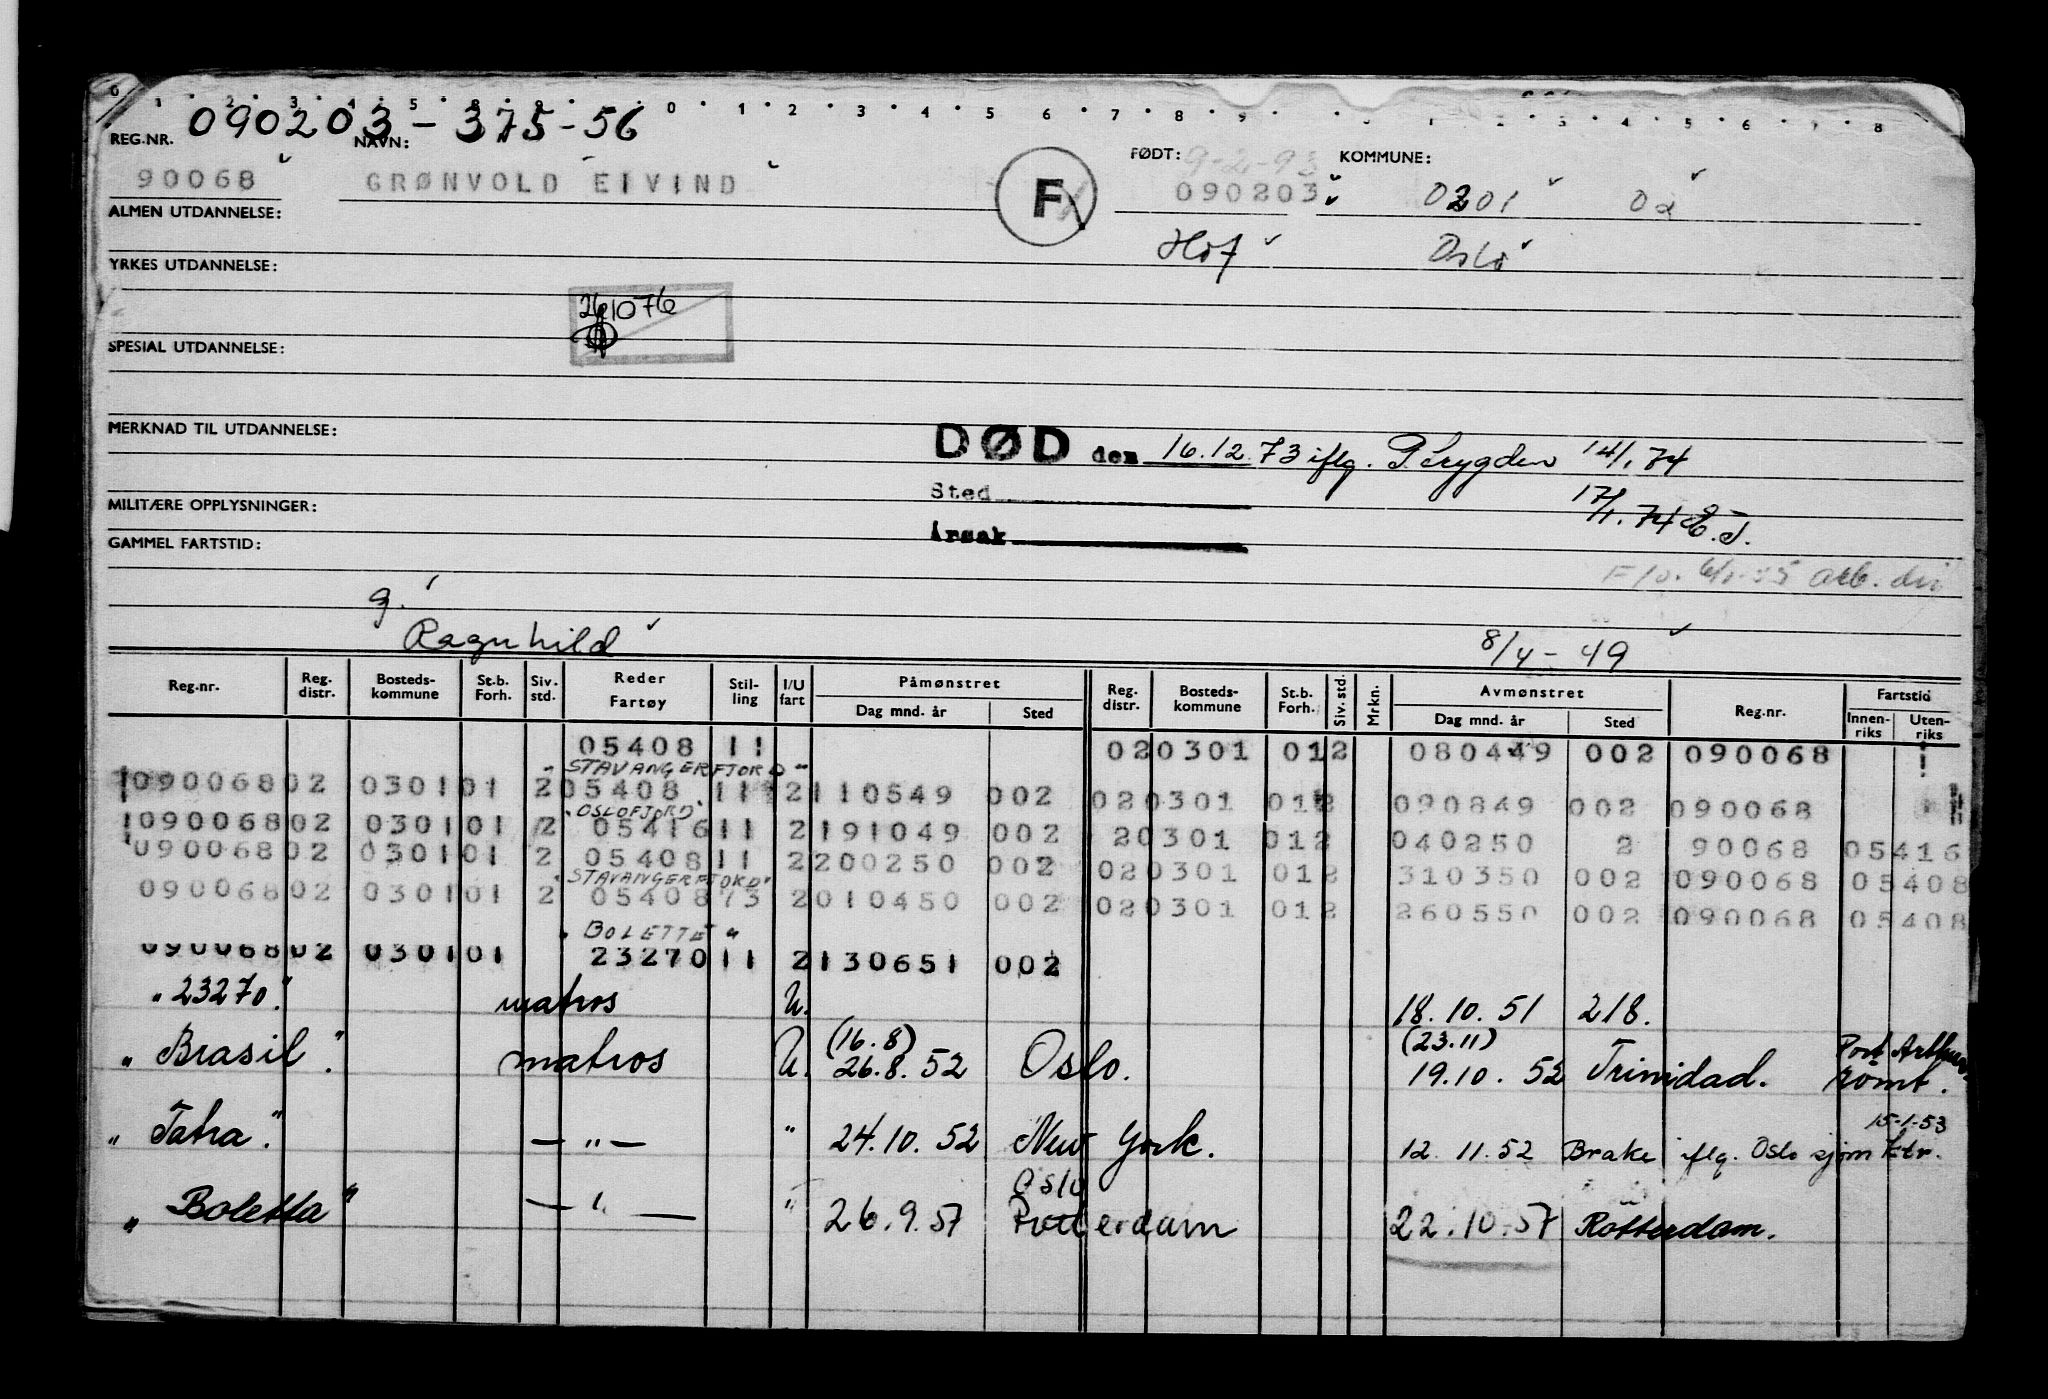 090203-375-56
REG.NR. NAVN: FØDT: 9-2-93 KOMMUNE:
90068 GRØNVOLD EIVIND F 090203 0201 02
ALMEN UTDANNELSE:
Hof Oslo
YRKES UTDANNELSE:
261076
SPESIAL UTDANNELSE:
MERKNAD TIL UTDANNELSE:
DØD den 16.12.73 iflg. P.trygden 14/1.74
Sted
MILITÆRE OPPLYSNINGER: 17/1.74 E.J.
Årsak
GAMMEL FARTSTID:
g.
Ragnhild 8/4-49
Reg.nr. Reg. distr. Bosteds-kommune St.b. Forh. Siv. std. Reder Fartøy Stil-ling I/U fart Påmønstret Dag mnd. år Sted Reg. distr. Bosteds-kommune St.b. Forh. Siv. std. Mrkn. Avmønstret Dag mnd. år Sted Reg.nr. Fartstid Innen-riks Uten-riks
05408 11 02 0301 01 2 080449 002 090068
"STAVANGERFJORD"
090068 02 0301 01 2 05408 11 2 110549 002 02 0301 01 2 090849 002 090068
"OSLOFJORD"
090068 02 0301 01 2 05416 11 2 191049 002 2 0301 01 2 040250 2 90068 05416
090068 02 0301 01 2 05408 11 2 200250 002 02 0301 01 2 310350 002 090068 05408
"STAVANGERFJORD"
090068 02 0301 01 2 05408 73 2 010450 002 02 0301 01 2 260550 002 090068 05408
"BOLETTE"
090068 02 0301 01 23270 11 2 130651 002
"23270." matros U. 18.10.51 218.
(16.8) (23.11) Port Arthur
"Brasil". matros U. 26.8.52 Oslo. 19.10.52 Trinidad. rømt.
15-1-53
"Tatra". — " — " 24.10.52 New York. 12.11.52 Brake iflg. Oslo sjøm ktr.
Oslo
"Boletta" — " — " 26.9.57 Rotterdam 22.10.57 Rotterdam.